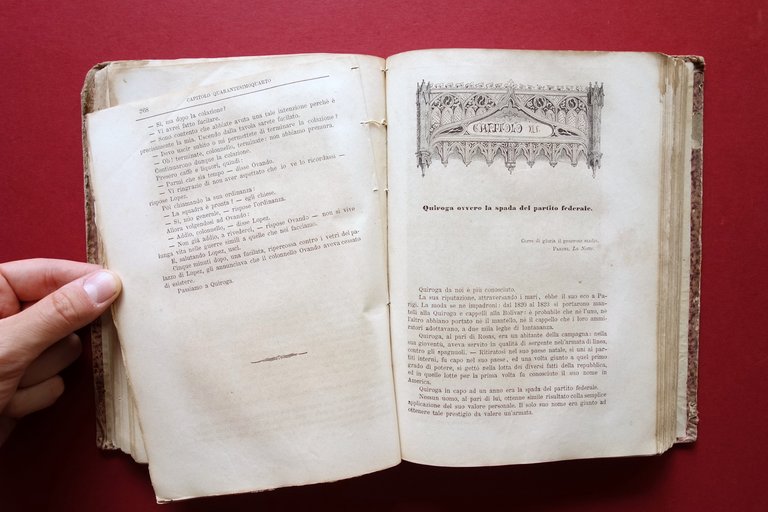 268
CAPITOLO QUARANTESIMOQUARTO
— Sì, ma dopo la colazione?
— Vi avrei fatto fucilare.
— Sono contento che abbiate avuta una tale intenzione perchè è
precisamente la mia. Uscendo dalla tavola sarete fucilato.
— Devo uscir subito o mi permettete di terminare la colazione?
— Oh! terminate, colonnello, terminate: non abbiamo premura.
Continuarono dunque la colazione.
Presero caffè e liquori, quindi:
— Parmi che sia tempo — disse Ovando.
— Vi ringrazio di non aver aspettato che io ve lo ricordassi —
rispose Lopez.
Poi chiamando la sua ordinanza:
— La squadra è pronta? — egli chiese.
— Sì, mio generale, — rispose l'ordinanza.
Allora volgendosi ad Ovando:
— Addio, colonnello, — disse Lopez.
— Non già addio, a rivederci, — rispose Ovando — non si vive
lunga vita nelle guerre simili a quelle che noi facciamo.
E, salutando Lopez, uscì.
Cinque minuti dopo, una fucilata, ripercossa contro i vetri del palazzo
di Lopez, gli annunciava che il colonnello Ovando aveva cessato
di esistere.
Passiamo a Quiroga.
CAPITOLO
Quiroga ovvero la spada del partito federale.
Corre di gloria il generoso
La Notte.
Quiroga da noi è più conosciuto.
La sua riputazione, attraversando i mari, ebbe il suo eco a Pa-
rigi. La moda se ne impadronì: dal 1820 al 1823 si portarono man-
telli alla Quiroga e cappelli alla Bolivar: è probabile che nè l'uno, nè
l'altro abbiano portato nè il mantello, nè il cappello che i loro ammi-
ratori adottavano, a due mila leghe di lontananza.
Quiroga, al pari di Rosas, era un abitante della campagna: nella
sua gioventù, aveva servito in qualità di sergente nell'armata di linea,
contro gli spagnuoli. — Ritiratosi nel suo paese natale, si unì ai par-
titi interni, fu capo nel suo paese, ed una volta giunto a quel primo
grado di potere, si gettò nella lotta dei diversi fatti della repubblica,
ed in quelle lotte per la prima volta fu conosciuto il suo nome in
America.
Quiroga in capo ad un anno era la spada del partito federale.
Nessun uomo, al pari di lui, ottenne simile risultato colla semplice
applicazione del suo valore personale. Il solo suo nome era giunto ad
ottenere tale prestigio da valere un'armata.